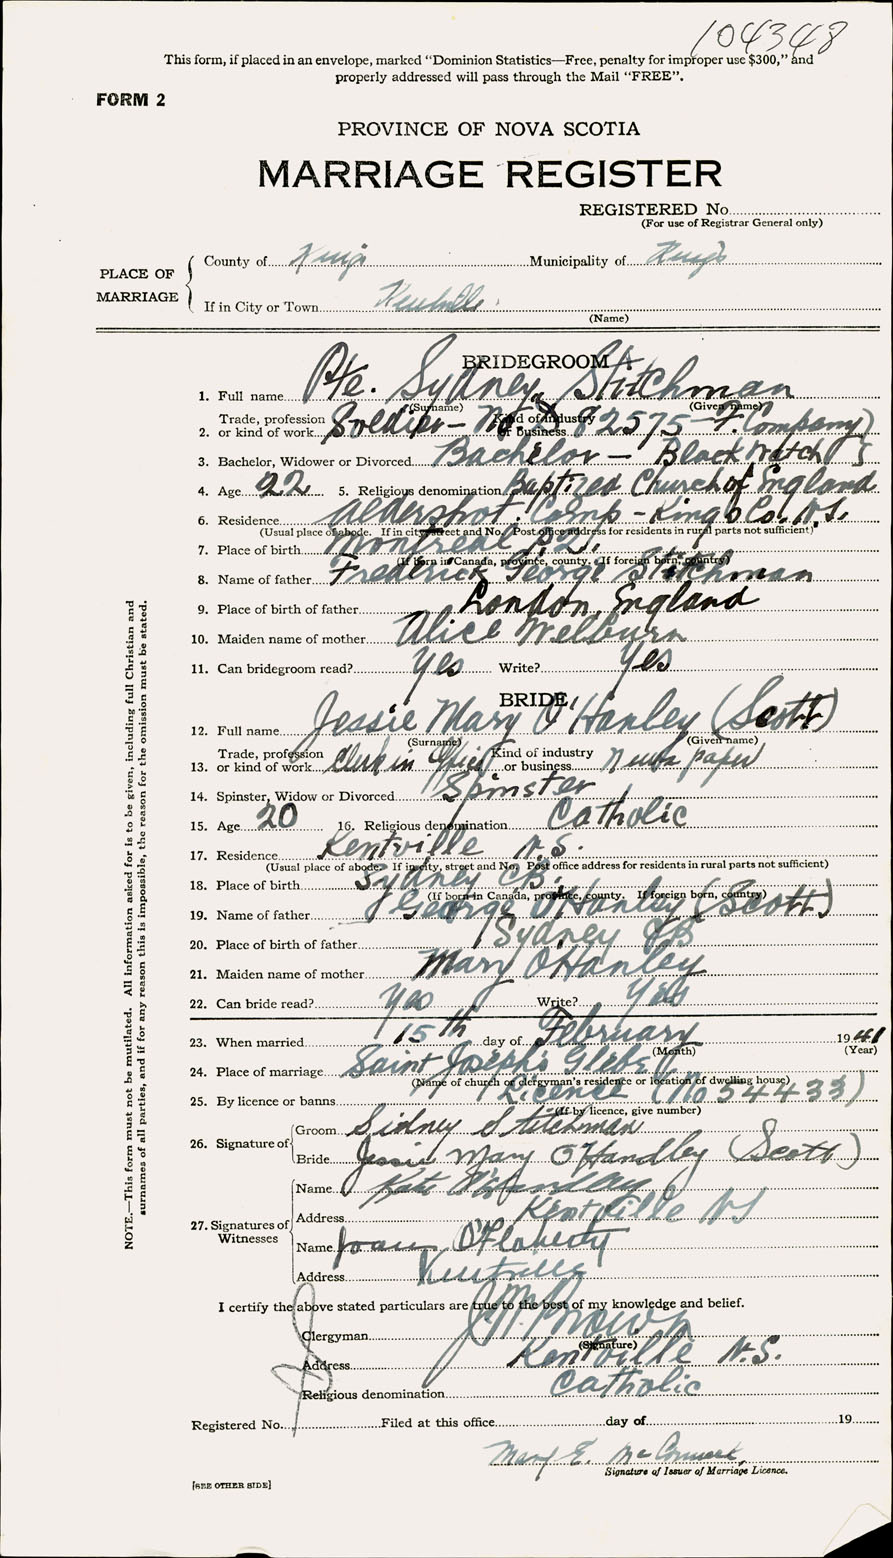 104348
This form, if placed in an envelope, marked "Dominion Statistics—Free, penalty for improper use $300," and
properly addressed will pass through the Mail "FREE".
FORM 2
PROVINCE OF NOVA SCOTIA
MARRIAGE REGISTER
REGISTERED No.
(For use of Registrar General only)
PLACE OF MARRIAGE
County of Kings Municipality of Kings
If in City or Town Kentville
(Name)
BRIDEGROOM
1. Full name Pte. Sydney Stitchman
(Surname) (Given name)
2. Trade, profession or kind of work Soldier - Kind of industry or business 82575 - F. Company)
3. Bachelor, Widower or Divorced Bachelor - Black Watch
4. Age 22 5. Religious denomination Baptized Church of England
6. Residence Aldershot Camp - Kings Co. N.S.
(Usual place of abode. If in city, street and No. Post office address for residents in rural parts not sufficient)
7. Place of birth Montreal
(If born in Canada, province, county. If foreign born, country)
8. Name of father Frederick George Stitchman
9. Place of birth of father London, England
10. Maiden name of mother Alice Welburn
11. Can bridegroom read? Yes Write? Yes
BRIDE
12. Full name Jessie Mary O'Hanley (Scott)
(Surname) (Given name)
13. Trade, profession or kind of work Clerk in Office Kind of industry or business News paper
14. Spinster, Widow or Divorced Spinster
15. Age 20 16. Religious denomination Catholic
17. Residence Kentville N.S.
(Usual place of abode. If in city, street and No. Post office address for residents in rural parts not sufficient)
18. Place of birth Sydney CB.
(If born in Canada, province, county. If foreign born, country)
19. Name of father George O'Hanley (Scott)
20. Place of birth of father Sydney CB
21. Maiden name of mother Mary O'Hanley
22. Can bride read? Yes Write? Yes
23. When married 15th day of February 1941
(Month) (Year)
24. Place of marriage Saint Joseph's Glebe
(Name of church or clergyman's residence or location of dwelling house)
25. By licence or banns Licence (No 54433)
(If by licence, give number)
26. Signature of Groom Sidney Stitchman
Bride Jessie Mary O'Handley (Scott)
27. Signatures of Witnesses
Name Kate O'Handley
Address Kentville NS
Name Joan O'Flaherty
Address Kentville
I certify the above stated particulars are true to the best of my knowledge and belief.
Clergyman J. M. Brown
(Signature)
Address Kentville N.S.
Religious denomination Catholic
Registered No. Filed at this office day of 19
Mary E.
Signature of Issuer of Marriage Licence.
[SEE OTHER SIDE]
NOTE.—This form must not be mutilated. All information asked for is to be given, including full Christian and
surnames of all parties, and if for any reason this is impossible, the reason for the omission must be stated.